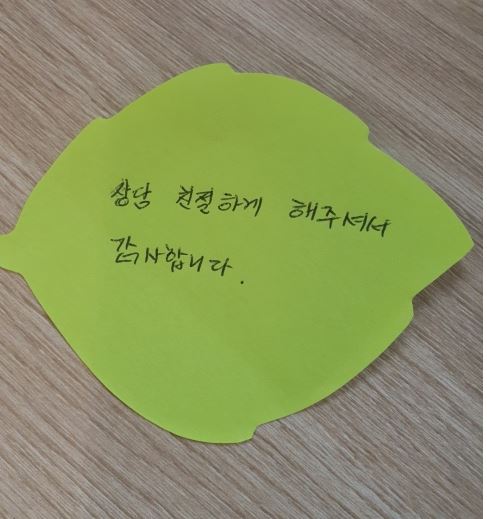 상담 친절하게 해주셔서
감사합니다.